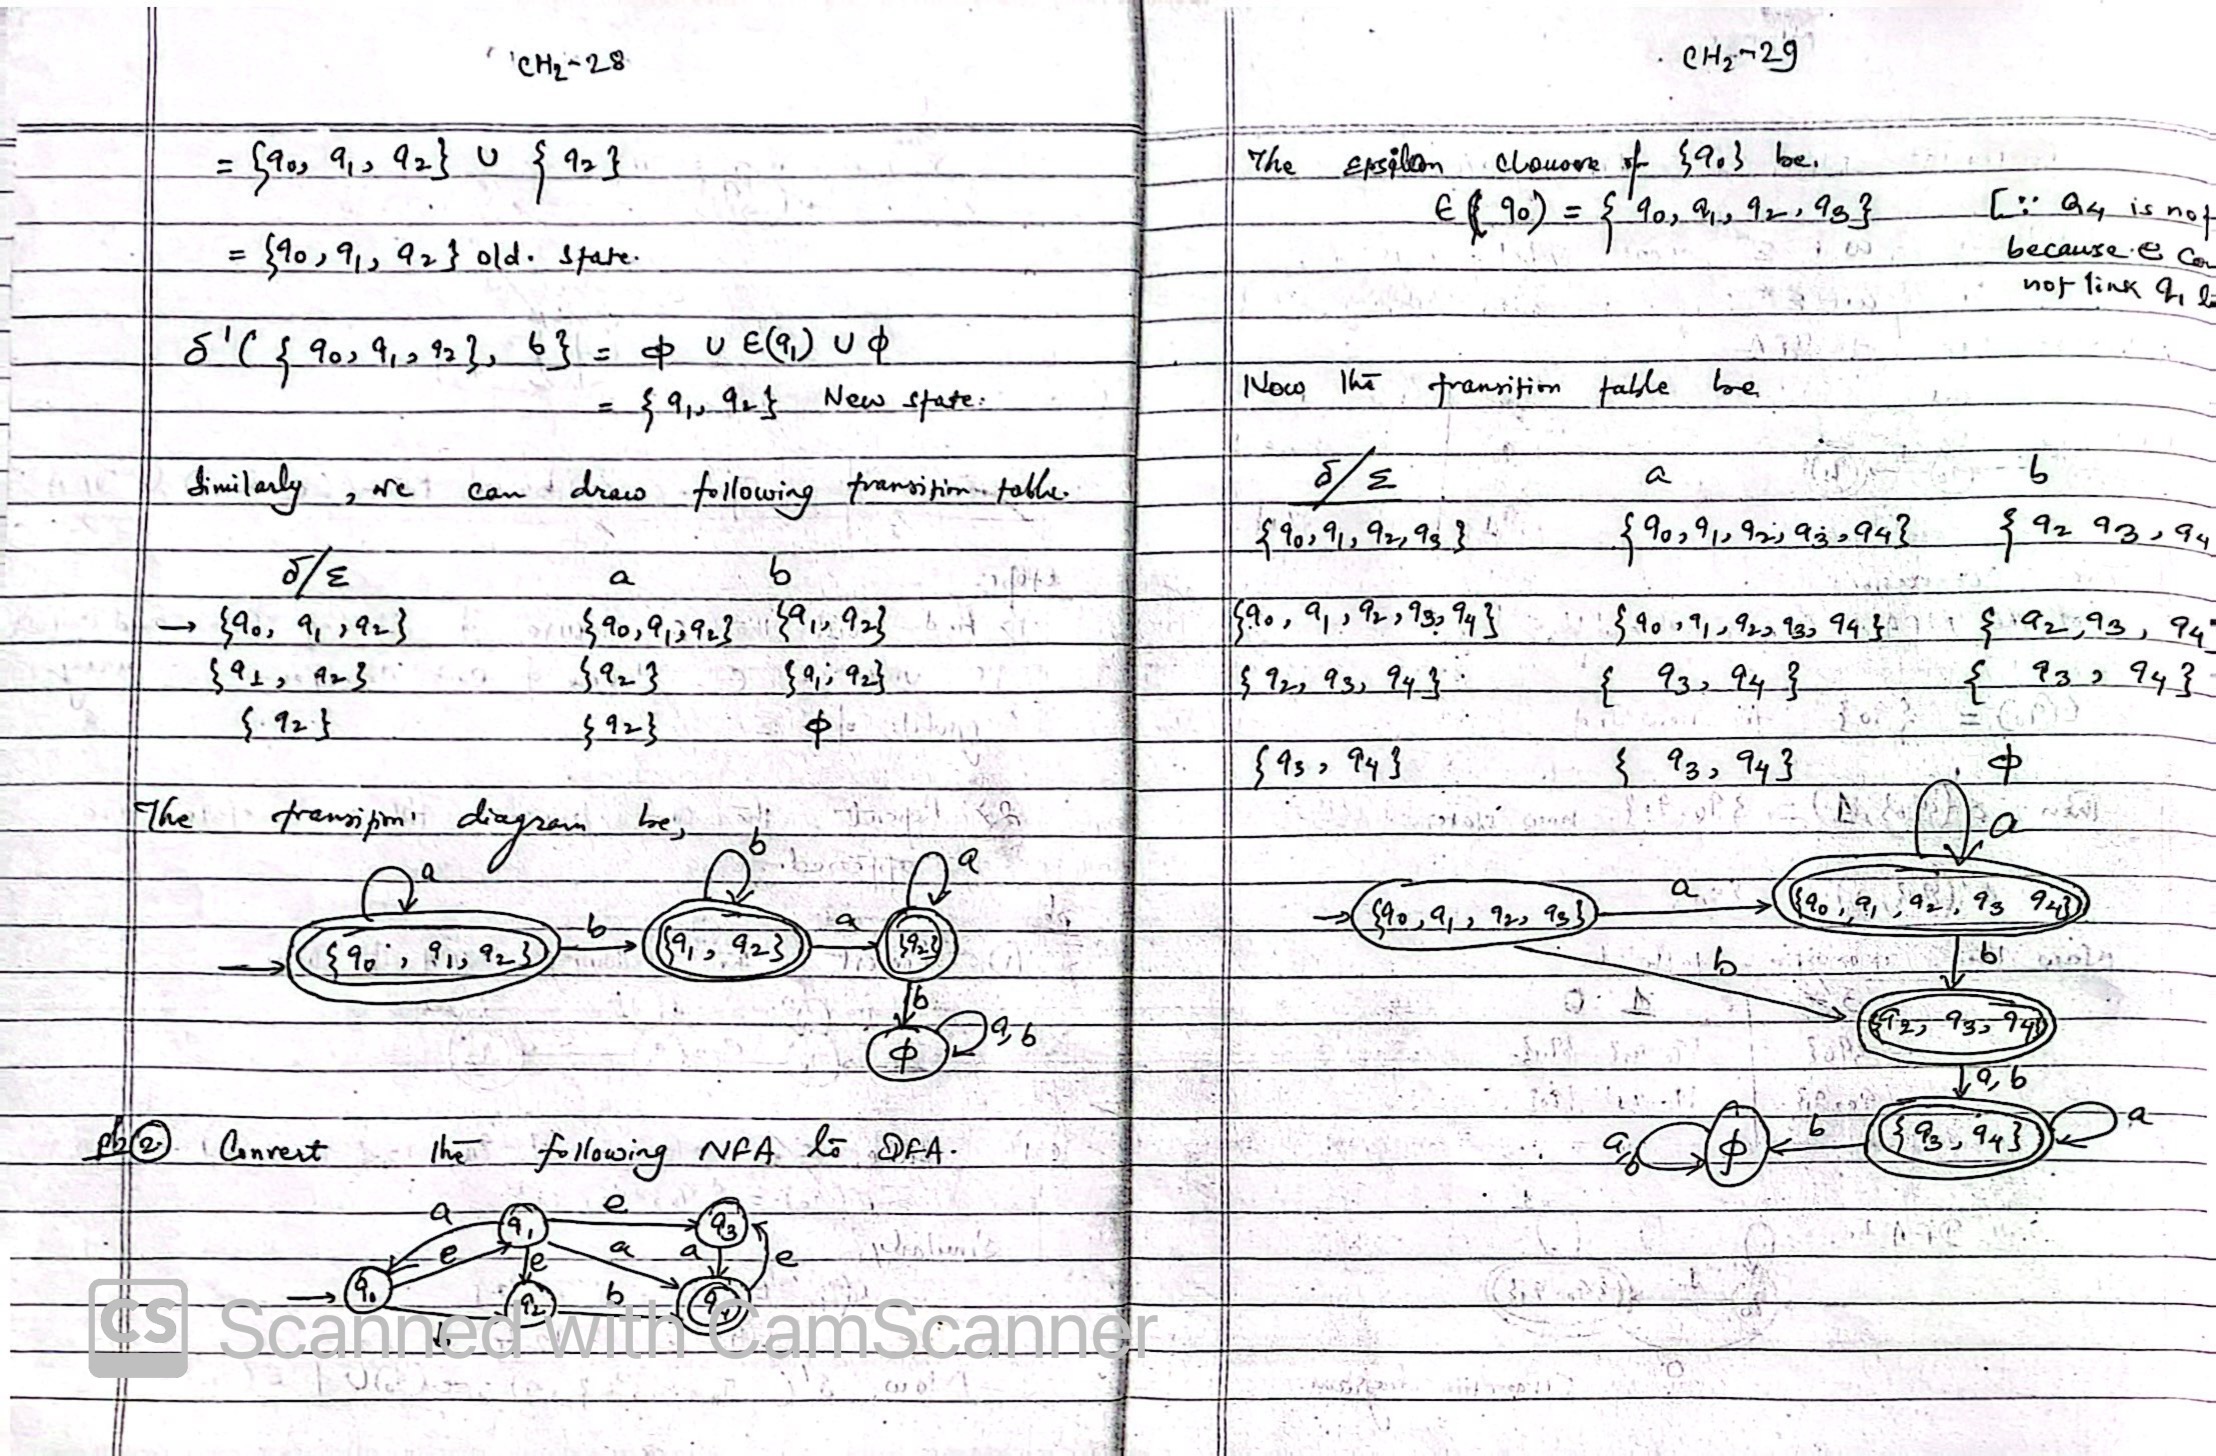 CH2-28
= {q0, q1, q2} ∪ {q2}
= {q0, q1, q2} old. state.
δ'({q0, q1, q2}, b} = ϕ ∪ ∈(q1) ∪ ϕ
= {q1, q2} New state.
Similarly, we can draw following transition table.
δ/Σ a b
→ {q0, q1, q2} {q0, q1, q2} {q1, q2}
{q1, q2} {q2} {q1, q2}
{q2} {q2} ϕ
The transition diagram be,
a b a
{q0, q1, q2} b {q1, q2} a {q2}
b
ϕ a,b
pb 2 Convert the following NFA to DFA.
a q1 e q3
e e a a e
q0 q2 b q4
b
CS Scanned with CamScanner
CH2-29
The epsilon of {q0} be.
∈(q0) = {q0, q1, q2, q3} [∵ q4 is not
because e
not link q1
Now the transition table be
δ/Σ a b
{q0, q1, q2, q3} {q0, q1, q2, q3, q4} {q2 q3, q4
{q0, q1, q2, q3, q4} {q0, q1, q2, q3, q4} {q2, q3, q4}
{q2, q3, q4} {q3, q4} {q3, q4}
{q3, q4} {q3, q4} ϕ
a
{q0, q1, q2, q3} a {q0, q1, q2, q3 q4}
b b
{q2, q3, q4}
a, b
a,b ϕ b {q3, q4} a